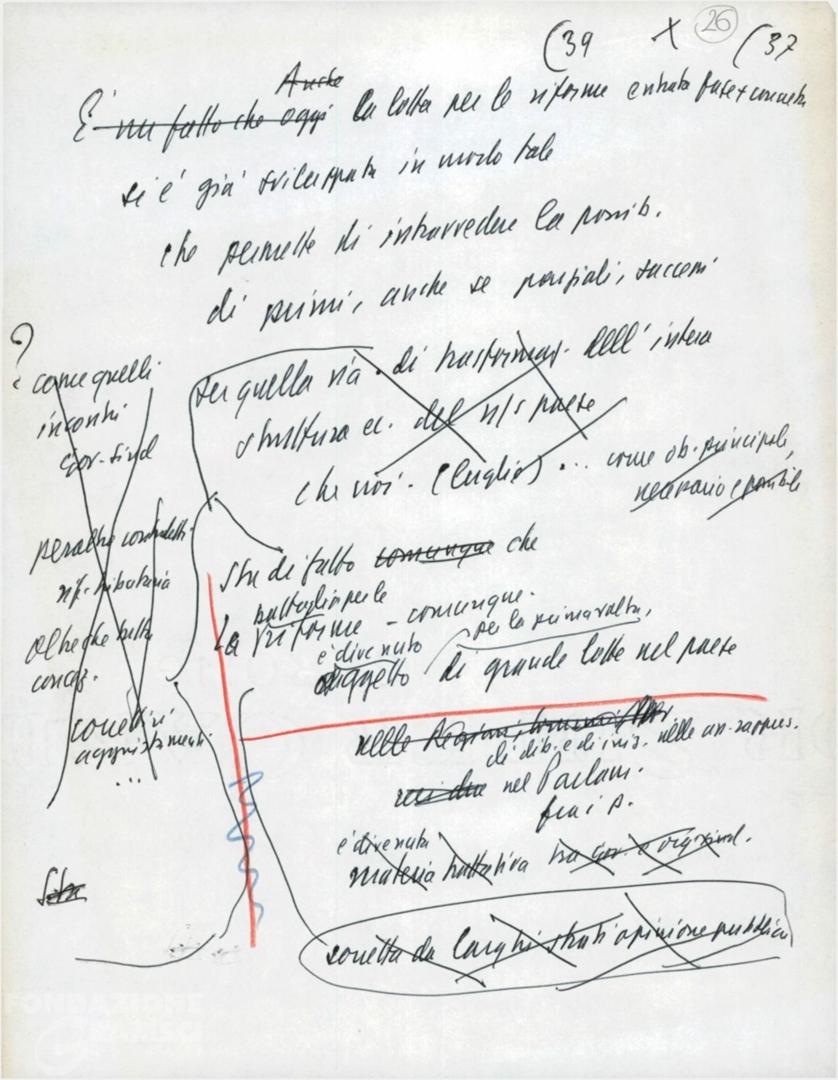 (39 X 26 (37
Anche
E' un fatto che oggi la lotta per le riforme entrata fase + concreta
si è già sviluppata in modo tale
che permette di intravvedere la possib.
di primi, anche se parziali, successi
?
come quelli
incontri
gov-sind
per quella via di trasformaz. dell'intera
struttura ec. del n/s paese
che noi - (luglio) ... come ob. principale,
necessario e possibile
peraltro
rif. tributaria
oltre che tutta
concez.
correttivi
aggiustamenti
...
Sta di fatto comunque che
battaglia per le
La riforme - comunque.
è divenuto per la prima volta,
oggetto di grande lotte nel paese
nelle Regioni,
di dib. e di iniz. nelle an. rappres.
nel Parlam.
fra i p.
è divenuta
materia trattativa tra gov. e org. sind.
Sta
sorretta da larghi strati opinione pubblica
FONDAZIONE
GRAMSCI